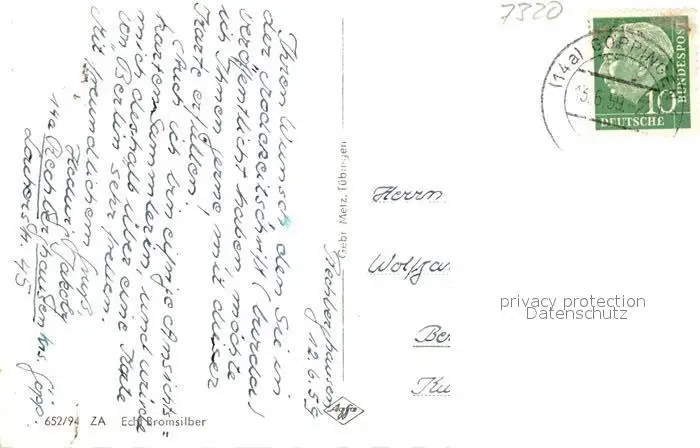 7320
(14a) GÖPPINGEN
13.6.59
DEUTSCHE
BUNDESPOST
10
Rechberghausen
12.6.59
Ihren Wunsch, den Sie in
der Rätselzeitschrift (
veröffentlicht haben, möchte
ich Ihnen gerne mit dieser
Karte erfüllen.
Auch ich bin eifrige Ansichts=
kartensammlerin, und würde
mich deshalb über eine Karte
von Berlin sehr freuen.
Mit freundlichem Gruß,
Hedwig Jakob
14a Rechberghausen Krs. Göpp.
45
Herrn
Wolfga
Be
privacy protection
Datenschutz
Gebr. Metz, Tübingen
Agfa
652/94 ZA Echt Bromsilber